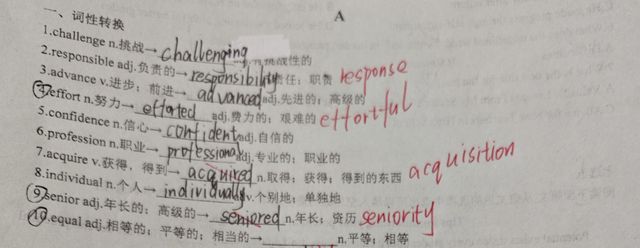 A
一、词性转换
1.challenge n.挑战→challenging 有挑战性的
2.responsible adj.负责的→responsibility 责任；职责 response
3.advance v.进步；前进→advanced adj.先进的；高级的
4.effort n.努力→effated adj.费力的；艰难的 effortful
5.confidence n.信心→confident adj.自信的
6.profession n.职业→professional adj.专业的；职业的
7.acquire v.获得，得到→acquired n.取得；获得；得到的东西 acquisition
8.individual n.个人→individually v.个别地；单独地
9.senior adj.年长的；高级的→seniored n.年长；资历 seniority
10.equal adj.相等的；平等的；相当的→ n.平等；相等